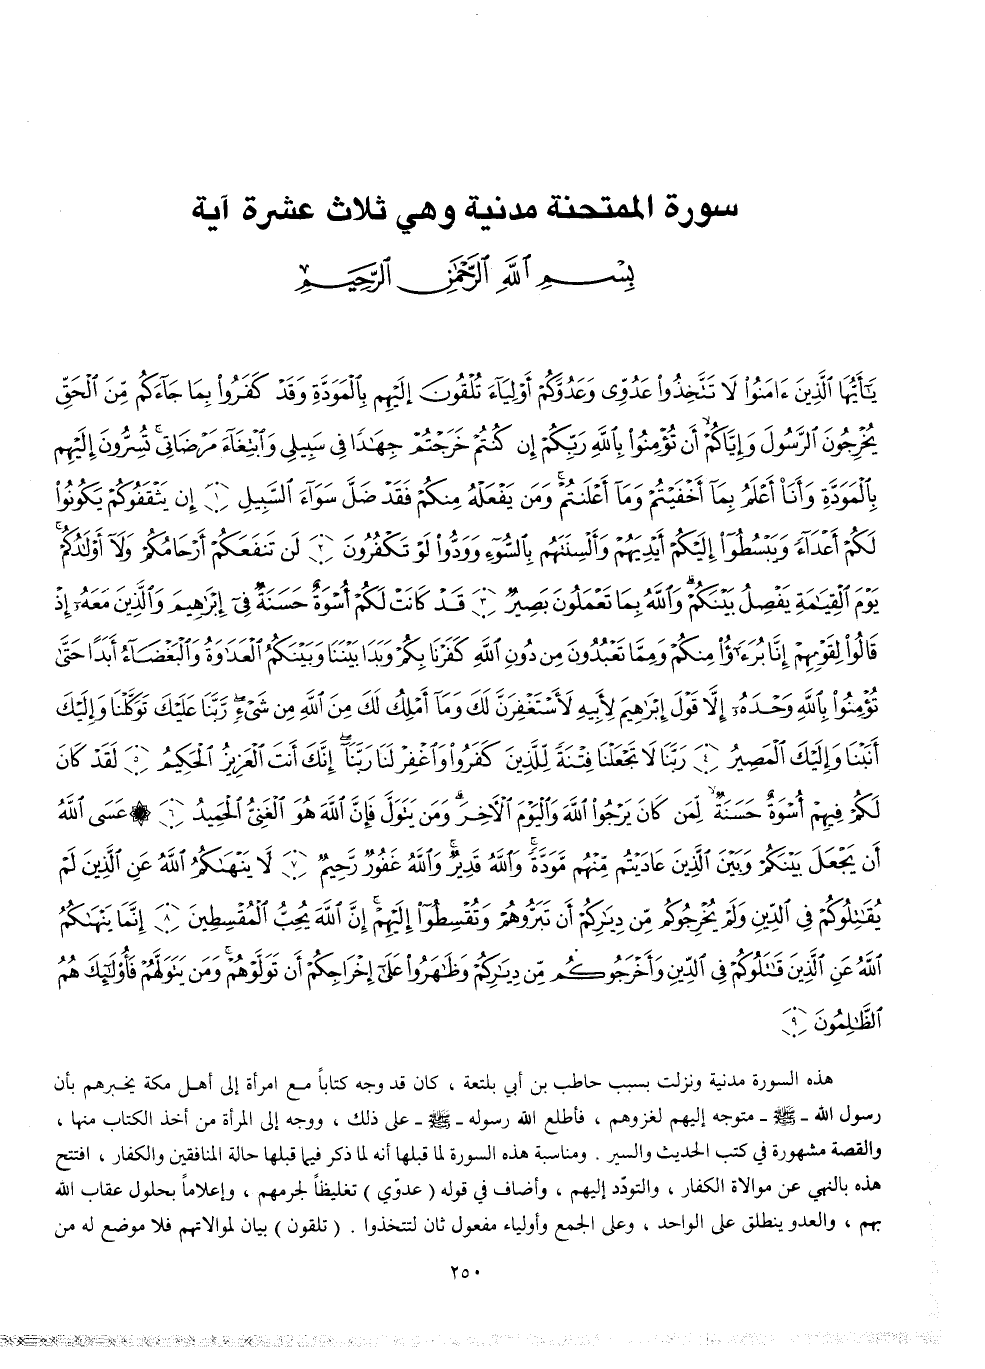 سورة الممتحنة مدنية وهي ثلاث عشرة آية
بِسْمِ ٱللَّهِ ٱلرَّحْمَٰنِ ٱلرَّحِيمِ
يَٰٓأَيُّهَا ٱلَّذِينَ ءَامَنُوا۟ لَا تَتَّخِذُوا۟ عَدُوِّى وَعَدُوَّكُمْ أَوْلِيَآءَ تُلْقُونَ إِلَيْهِم بِٱلْمَوَدَّةِ وَقَدْ كَفَرُوا۟ بِمَا جَآءَكُم مِّنَ ٱلْحَقِّ
يُخْرِجُونَ ٱلرَّسُولَ وَإِيَّاكُمْ ۙ أَن تُؤْمِنُوا۟ بِٱللَّهِ رَبِّكُمْ إِن كُنتُمْ خَرَجْتُمْ جِهَٰدًا فِى سَبِيلِى وَٱبْتِغَآءَ مَرْضَاتِى ۚ تُسِرُّونَ إِلَيْهِم
بِٱلْمَوَدَّةِ وَأَنَا۠ أَعْلَمُ بِمَآ أَخْفَيْتُمْ وَمَآ أَعْلَنتُمْ ۚ وَمَن يَفْعَلْهُ مِنكُمْ فَقَدْ ضَلَّ سَوَآءَ ٱلسَّبِيلِ ١ إِن يَثْقَفُوكُمْ يَكُونُوا۟
لَكُمْ أَعْدَآءً وَيَبْسُطُوٓا۟ إِلَيْكُمْ أَيْدِيَهُمْ وَأَلْسِنَتَهُم بِٱلسُّوٓءِ وَوَدُّوا۟ لَوْ تَكْفُرُونَ ٢ لَن تَنفَعَكُمْ أَرْحَامُكُمْ وَلَآ أَوْلَٰدُكُمْ ۚ
يَوْمَ ٱلْقِيَٰمَةِ يَفْصِلُ بَيْنَكُمْ ۚ وَٱللَّهُ بِمَا تَعْمَلُونَ بَصِيرٌ ٣ قَدْ كَانَتْ لَكُمْ أُسْوَةٌ حَسَنَةٌ فِىٓ إِبْرَٰهِيمَ وَٱلَّذِينَ مَعَهُۥٓ إِذْ
قَالُوا۟ لِقَوْمِهِمْ إِنَّا بُرَءَٰٓؤُا۟ مِنكُمْ وَمِمَّا تَعْبُدُونَ مِن دُونِ ٱللَّهِ كَفَرْنَا بِكُمْ وَبَدَا بَيْنَنَا وَبَيْنَكُمُ ٱلْعَدَٰوَةُ وَٱلْبَغْضَآءُ أَبَدًا حَتَّىٰ
تُؤْمِنُوا۟ بِٱللَّهِ وَحْدَهُۥٓ إِلَّا قَوْلَ إِبْرَٰهِيمَ لِأَبِيهِ لَأَسْتَغْفِرَنَّ لَكَ وَمَآ أَمْلِكُ لَكَ مِنَ ٱللَّهِ مِن شَىْءٍ ۖ رَّبَّنَا عَلَيْكَ تَوَكَّلْنَا وَإِلَيْكَ
أَنَبْنَا وَإِلَيْكَ ٱلْمَصِيرُ ٤ رَبَّنَا لَا تَجْعَلْنَا فِتْنَةً لِّلَّذِينَ كَفَرُوا۟ وَٱغْفِرْ لَنَا رَبَّنَآ ۖ إِنَّكَ أَنتَ ٱلْعَزِيزُ ٱلْحَكِيمُ ٥ لَقَدْ كَانَ
لَكُمْ فِيهِمْ أُسْوَةٌ حَسَنَةٌ لِّمَن كَانَ يَرْجُوا۟ ٱللَّهَ وَٱلْيَوْمَ ٱلْءَاخِرَ ۚ وَمَن يَتَوَلَّ فَإِنَّ ٱللَّهَ هُوَ ٱلْغَنِىُّ ٱلْحَمِيدُ ٦ ۞ عَسَى ٱللَّهُ
أَن يَجْعَلَ بَيْنَكُمْ وَبَيْنَ ٱلَّذِينَ عَادَيْتُم مِّنْهُم مَّوَدَّةً ۚ وَٱللَّهُ قَدِيرٌ ۚ وَٱللَّهُ غَفُورٌ رَّحِيمٌ ٧ لَّا يَنْهَىٰكُمُ ٱللَّهُ عَنِ ٱلَّذِينَ لَمْ
يُقَٰتِلُوكُمْ فِى ٱلدِّينِ وَلَمْ يُخْرِجُوكُم مِّن دِيَٰرِكُمْ أَن تَبَرُّوهُمْ وَتُقْسِطُوٓا۟ إِلَيْهِمْ ۚ إِنَّ ٱللَّهَ يُحِبُّ ٱلْمُقْسِطِينَ ٨ إِنَّمَا يَنْهَىٰكُمُ
ٱللَّهُ عَنِ ٱلَّذِينَ قَٰتَلُوكُمْ فِى ٱلدِّينِ وَأَخْرَجُوكُم مِّن دِيَٰرِكُمْ وَظَٰهَرُوا۟ عَلَىٰٓ إِخْرَاجِكُمْ أَن تَوَلَّوْهُمْ ۚ وَمَن يَتَوَلَّهُمْ فَأُو۟لَٰٓئِكَ هُمُ
ٱلظَّٰلِمُونَ ٩
هذه السورة مدنية ونزلت بسبب حاطب بن أبي بلتعة ، كان قد وجه كتاباً مع امرأة إلى أهل مكة يخبرهم بأن
رسول الله ـ ﷺ ـ متوجه إليهم لغزوهم ، فأطلع الله رسوله ـ ﷺ ـ على ذلك ، ووجه إلى المرأة من أخذ الكتاب منها ،
والقصة مشهورة في كتب الحديث والسير . ومناسبة هذه السورة لما قبلها أنه لما ذكر فيما قبلها حالة المنافقين والكفار ، افتتح
هذه بالنهي عن موالاة الكفار ، والتودّد إليهم ، وأضاف في قوله ( عدوّي ) تغليظاً لجرمهم ، وإعلاماً بحلول عقاب الله
بهم ، والعدو ينطلق على الواحد ، وعلى الجمع وأولياء مفعول ثان لتتخذوا . ( تلقون ) بيان لموالاتهم فلا موضع له من
٢٥٠